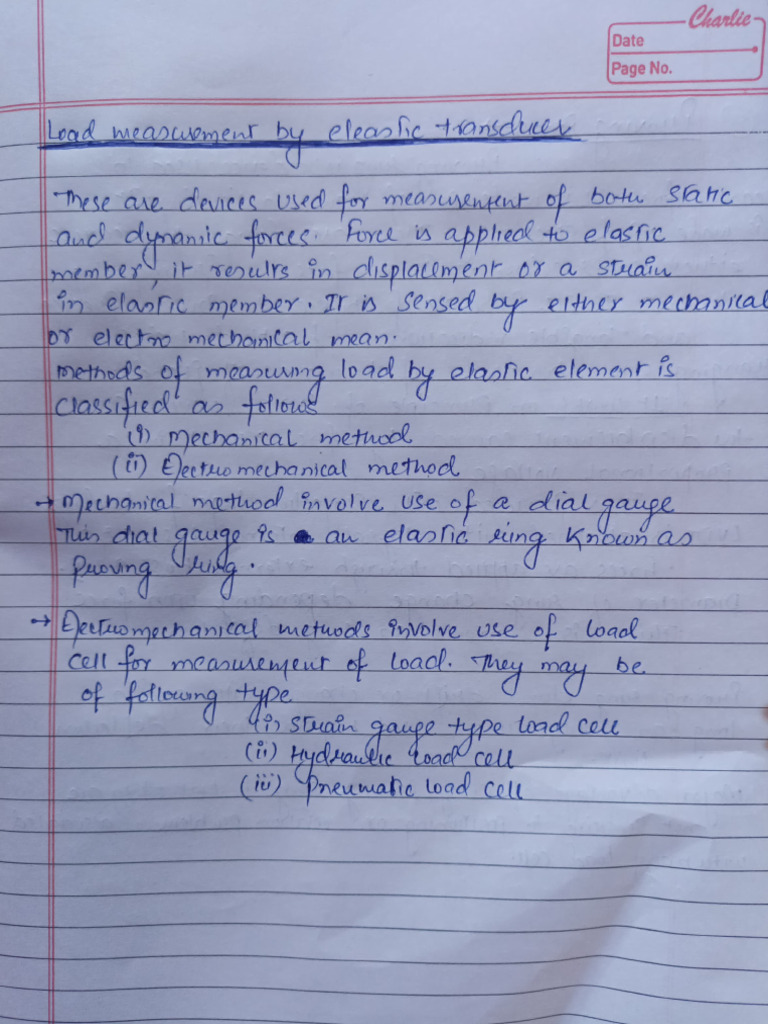 Charlie
Date
Page No.
Load measurement by eleastic transducer
These are devices used for measurement of both static
and dynamic forces. Force is applied to elastic
member, it results in displacement or a strain
in elastic member. It is sensed by either mechanical
or electro mechanical mean.
methods of measuring load by elastic element is
classified as follows
(i) Mechanical method
(ii) Electromechanical method
→ Mechanical method involve use of a dial gauge
This dial gauge is an elastic ring known as
Proving ring.
→ Electromechanical methods involve use of load
cell for measurement of load. They may be
of following type
(i) Strain gauge type load cell
(ii) Hydraulic load cell
(iii) Pneumatic load cell